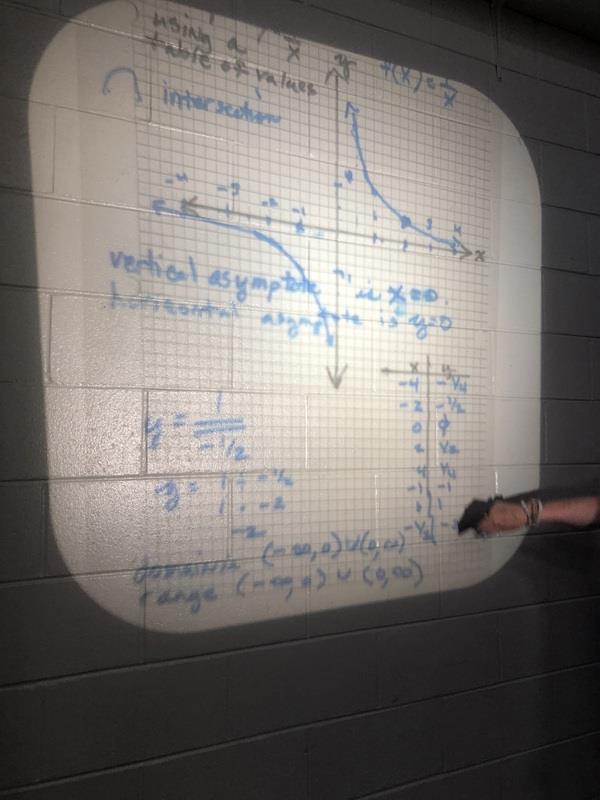 using a
table of values
intersection
y
f(x) = 1/x
-4 -3 -2 -1
1 2 3 4
x
-1
vertical asymptote is x=0.
horizontal asymptote is y=0
x y
-4 -1/4
-2 -1/2
0 φ
2 1/2
4 1/4
-1 -1
1 1
-1/2
y = 1
-1/2
y = 1 ÷ -1/2
1 · -2
-2
domain (-∞,0)∪(0,∞)
range (-∞,0) ∪ (0,∞)